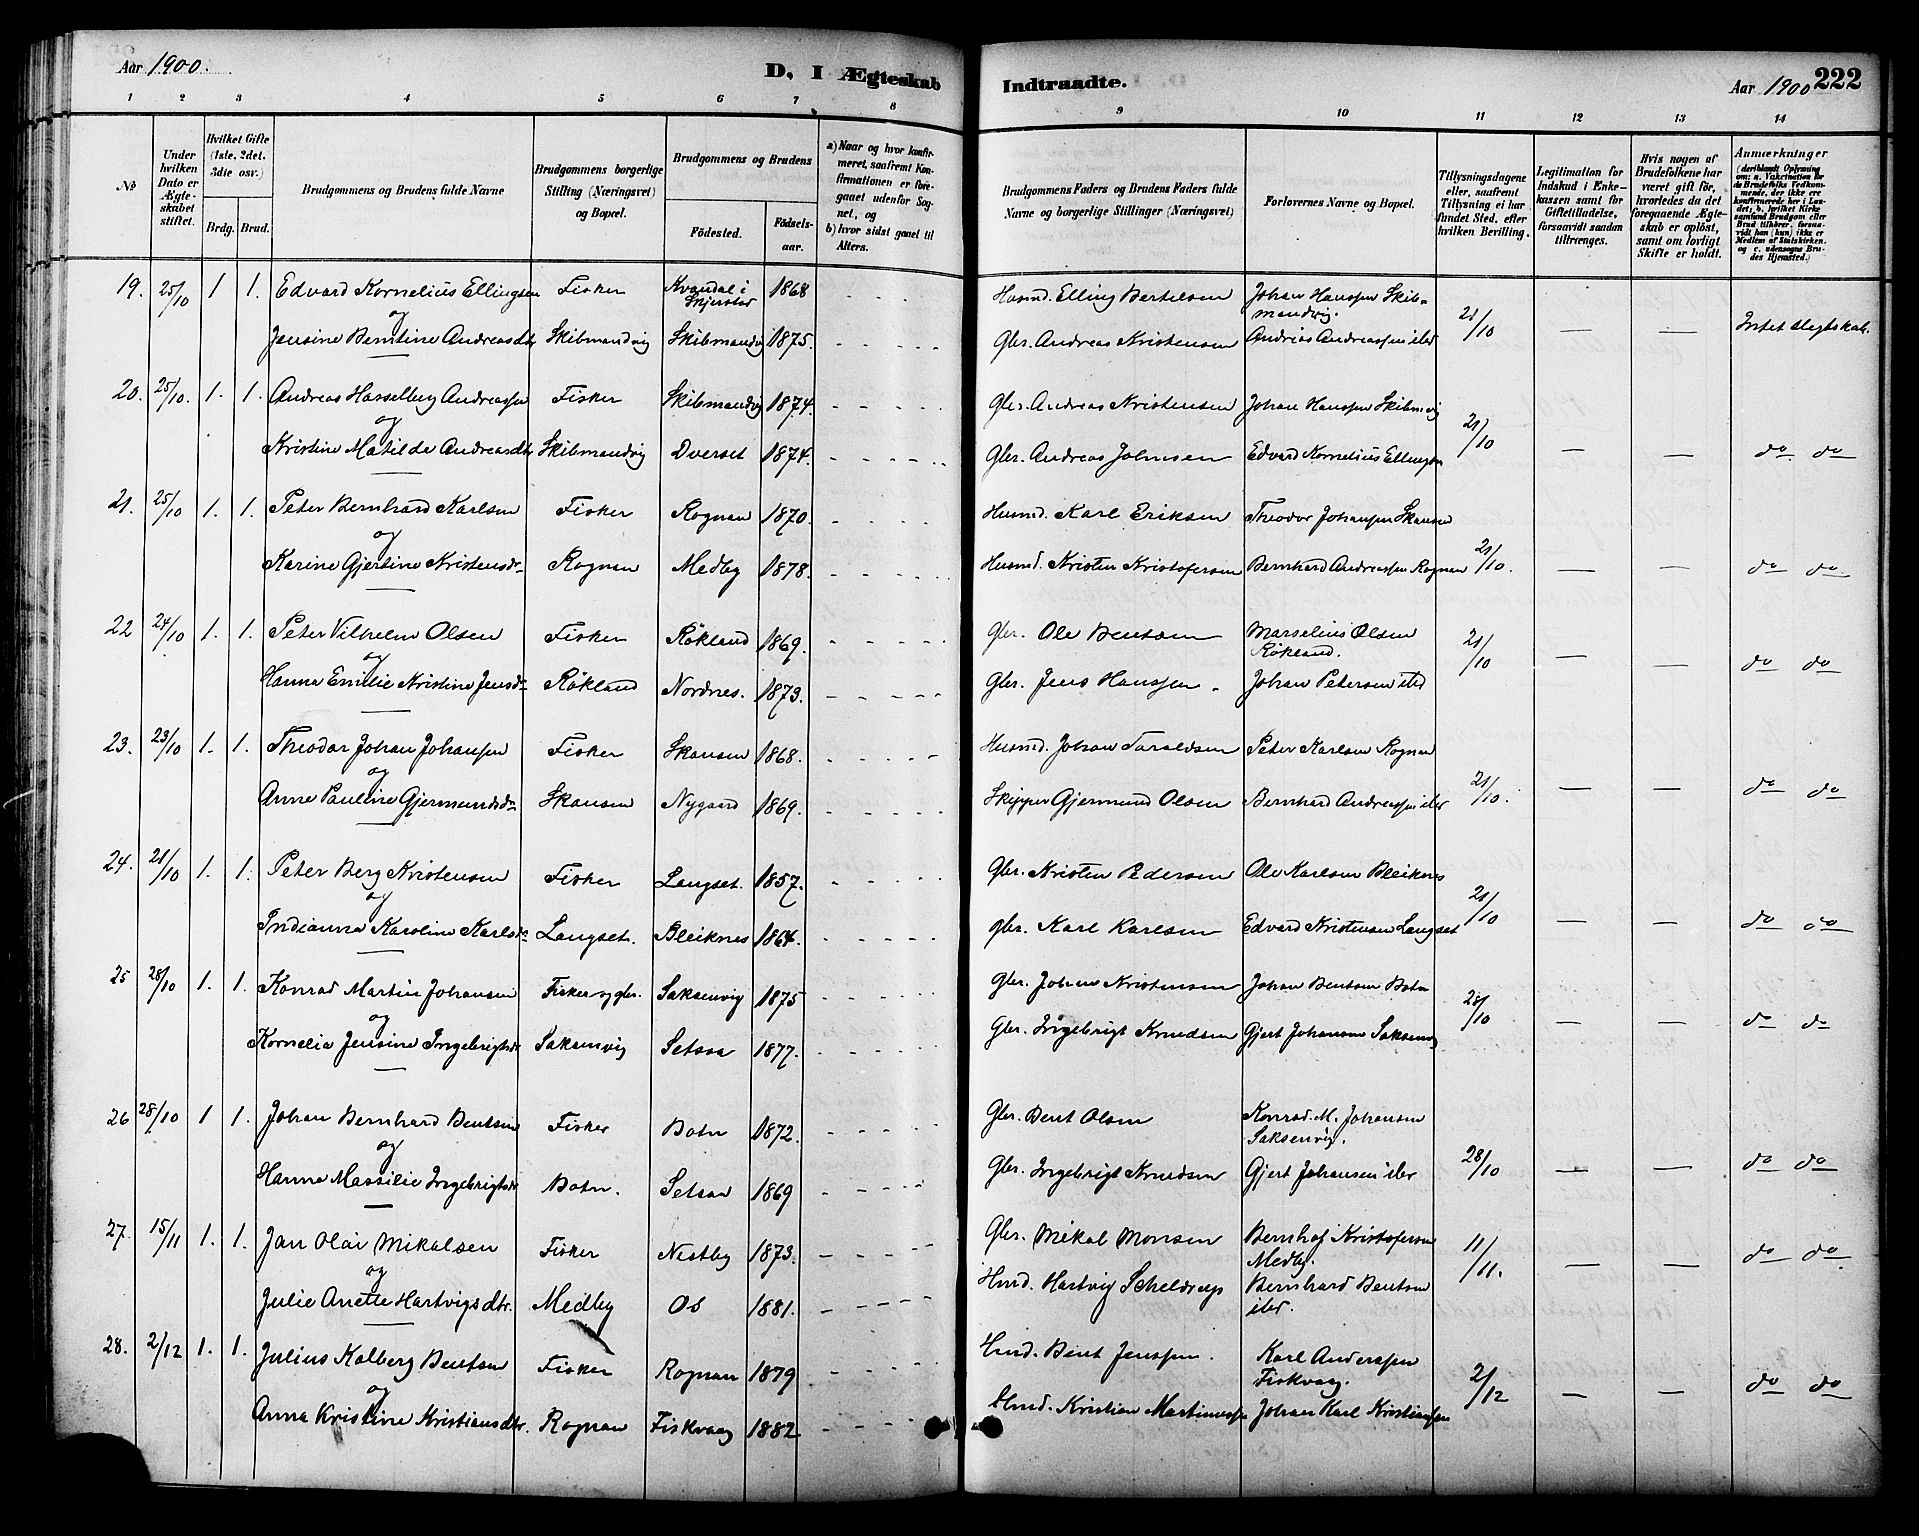 Aar 1900.
D. I Ægteskab
Indtraadte.
Aar 1900
222
1 2 3 4 5 6 7 8 9 10 11 12 13 14
No
Under hvilken Dato er Ægteskabet stiftet.
Hvilket Gifte (1ste, 2det, 3die osv.)
Brdg. Brud.
Brudgommens og Brudens fulde Navne
Brudgommens borgerlige Stilling (Næringsvei) og Bopæl.
Brudgommens og Brudens
Fødested.
Fødselsaar.
a) Naar og hvor konfirmeret, saafremt Konfirmationen er foregaaet udenfor Sognet, og
b) hvor sidst gaaet til Alters.
Brudgommens Faders og Brudens Faders fulde Navne og borgerlige Stillinger (Næringsvei)
Forlovernes Navne og Bopæl.
Tillysningsdagene eller, saafremt Tillysning ei har fundet Sted, efter hvilken Bevilling.
Legitimation for Indskud i Enkekassen samt for Giftetilladelse, forsaavidt saadan tiltrænges.
Hvis nogen af Brudefolkene har været gift før, hvorledes da det foregaaende Ægteskab er opløst, samt om lovligt Skifte er holdt.
Anmærkninger
(deriblandt Oplysning om: a. Vakcination for de Brudefolks Vedkommende, der ikke ere konfirmerede her i Landet; b. hvilket Kirkesamfund Brudgom eller Brud tilhører, forsaavidt han (hun) ikke er Medlem af Statskirken, og c. udensogns Brudes Hjemsted.)
19. 25/10 1 1. Edvard Kornelius Ellingsen Fisker Kvandal i Skjerstad 1868 Husmd. Elling Bertelsen Johan Hanssen Skibmandvig. 21/10 — — Intet slegtskab.
og
Jensine Bentine Andreasdtr Skibmandvig Skibsmandvig 1875. Gbr. Andreas Kristensen Andreas Andreassen ibd
20. 25/10. 1. 1. Andreas Hasselberg Andreassen Fisker Skibsmandvig 1874. Gbr. Andreas Kristensen Johan Hanssen Skibmvig 21/10 — — do do
og
Kristine Matilde Andreasdtr Skibsmandvig Dverset 1874. Gbr. Andreas Johnsen Edvard Kornelius Ellingsen
21. 25/10 1. 1. Peter Bernhard Karlsen Fisker Rognan 1870. Husmd. Karl Eriksen Theodor Johansen Skansen 21/10. — — do do
og
Karine Gjertine Kristensdr Rognan Medby 1878. Husmd. Kristen Kristofersen Bernhard Andreassen Rognan
22 24/10 1. 1. Peter Vilhelm Olsen Fisker Røkland 1869. Gbr. Ole Bentsen Marselius Olsen Røkland. 21/10 — — do do
og
Hanna Emilie Kristine Jensdr Røkland Nordnes. 1873. Gbr. Jens Hanssen. Johan Petersen ibd
23. 23/10 1. 1. Theodor Johan Johansen Fisker Skansen 1868. Husmd. Johan Taraldsen Peter Karlsen Rognan 21/10. — — do do
og
Anne Pauline Gjermundsdr Skansen Nygaard 1869. Skipper Gjermund Olsen Bernhard Andreassen ibd
24. 21/10 1. 1. Peter Berg Kristensen Fisker Langset. 1857. Gbr. Kristen Pedersen Ole Karlsen Bleiknes 21/10 — — do do
og
Indianna Karoline Karlsdr Langset. Bleiknes 1864. Gbr. Karl Karlsen Edvard Kristensen Langset
25 28/10 1. 1. Konrad Martin Johansen Fisker og gbr. Saksenvig 1875 Gbr. Johan Kristensen Johan Bentsen Botn 28/10 — — do do
og
Kornelia Jensine Ingebrigtsdr Saksenvig Setsaa 1877. Gbr. Ingebrigt Knudsen Gjert Johansen Saksenvig
26 28/10 1 1. Johan Bernhard Bentsen Fisker Botn 1872. Gbr. Bent Olsen Konrad. M. Johansen Saksenvig. 28/10 — — do do
og
Hanna Massilie Ingebrigtsdr Botn. Setsaa 1869 Gbr. Ingebrigt Knudsen Gjert Johansen ibd
27. 15/11 1. 1. Jan Olai Mikalsen Fisker Nestby 1873. Gbr. Mikal Monsen Bernhof Kristofersen Medby. 11/11. — — do do
og
Julie Anette Hartvigsdtr. Medby Os 1881. Hmd. Hartvig Scheldrup Bernhard Bentsen ibd.
28. 2/12 1. 1. Julius Kolberg Bentsen Fisker Rognan 1879 Hmd. Bent Jenssen. Karl Anderssen Fiskvaag. 2/12 — — do do
og
Anna Kristine Kristiansdtr. Rognan Fiskvaag 1882. Hmd. Kristian Martinussen Johan Karl Kristiansen